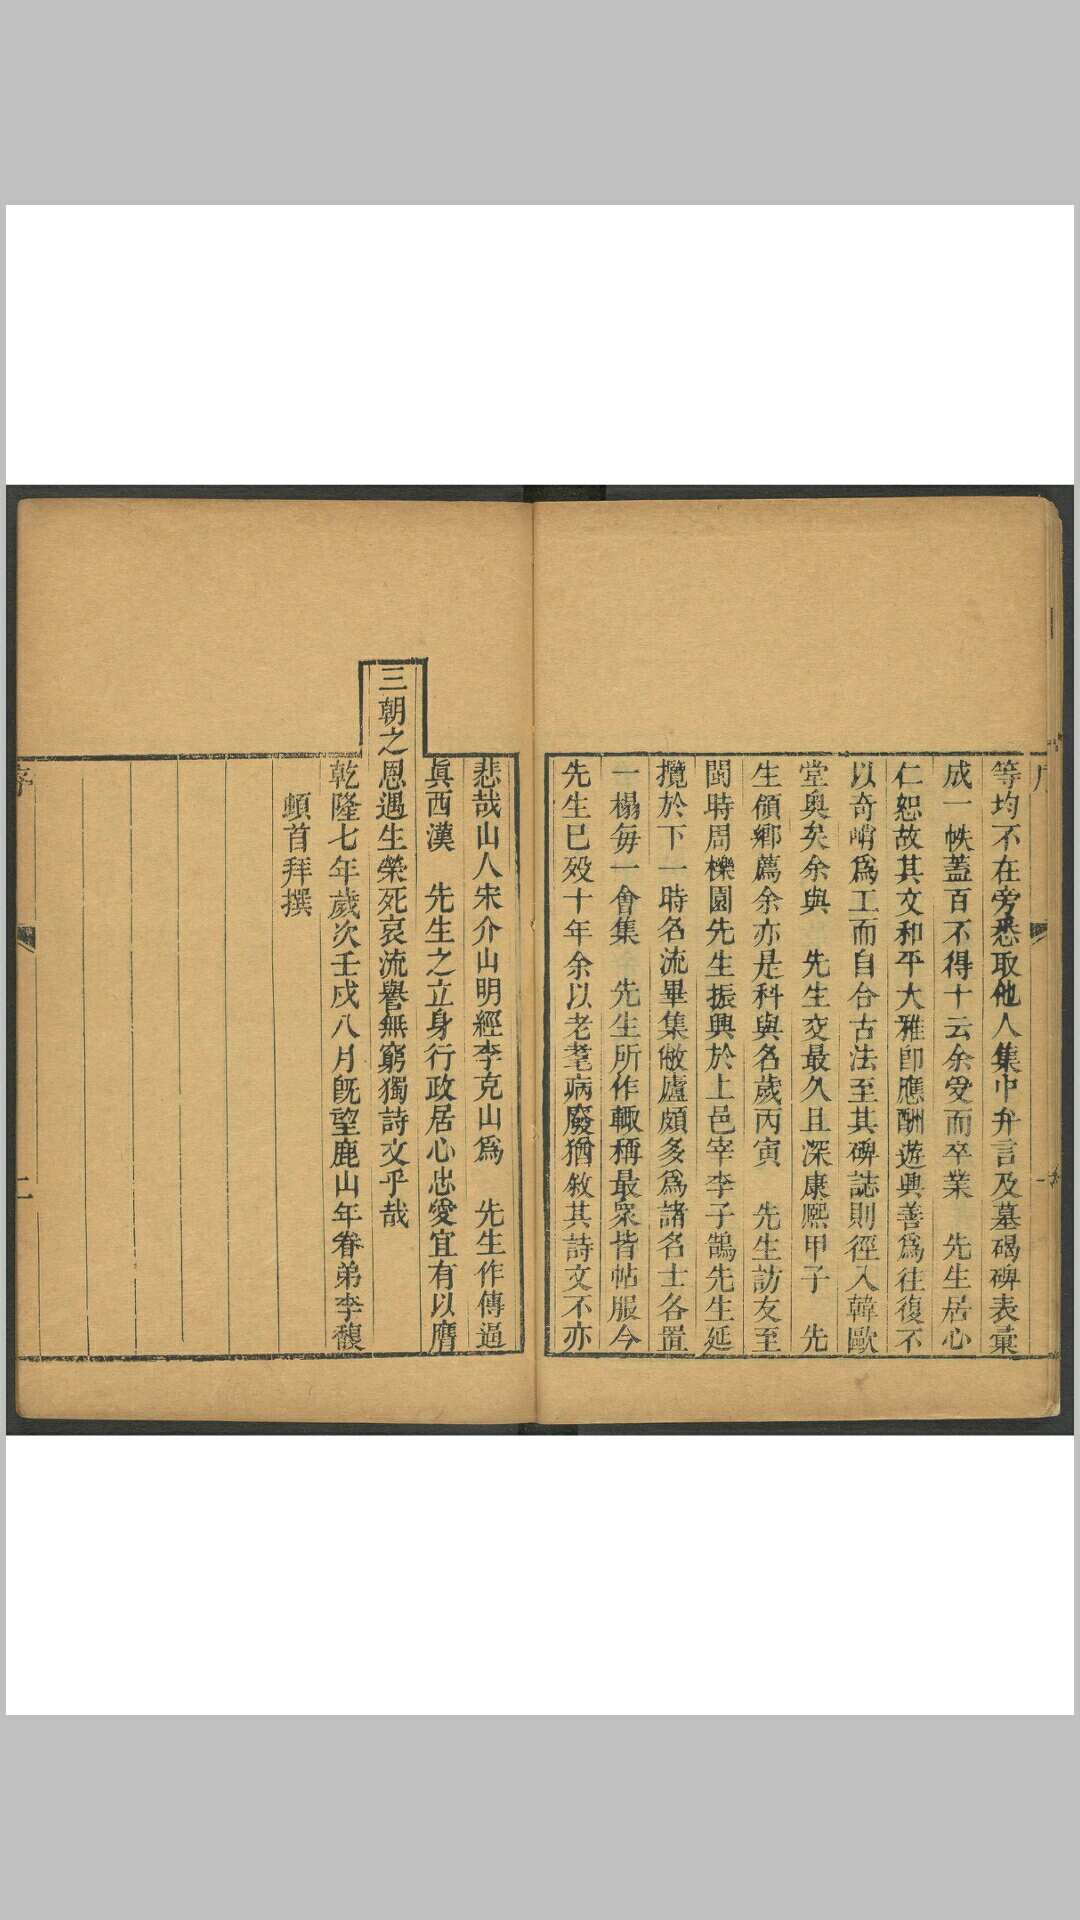 等均不在旁悉取他人集中弁言及墓碣碑表彙
成一帙蓋百不得十云余受而卒業　先生居心
仁恕故其文和平大雅卽應酬遊興善爲往復不
以奇峭爲工而自合古法至其碑誌則徑入韓歐
堂奥矣余與　先生交最久且深康熙甲子　先
生領鄉薦余亦是科與名歲丙寅　先生訪友至
閩時周櫟園先生振興於上邑宰李子鵠先生延
攬於下一時名流畢集敝廬頗多爲諸名士各置
一榻每一會集　先生所作輙稱最衆皆帖服今
先生已殁十年余以老耄病廢猶敘其詩文不亦
悲哉山人宋介山明經李克山爲　先生作傳逼
眞西漢　先生之立身行政居心忠愛宜有以膺
三朝之恩遇生榮死哀流譽無窮獨詩文乎哉
乾隆七年歲次壬戌八月旣望鹿山年眷弟李馥
頓首拜撰
序
二